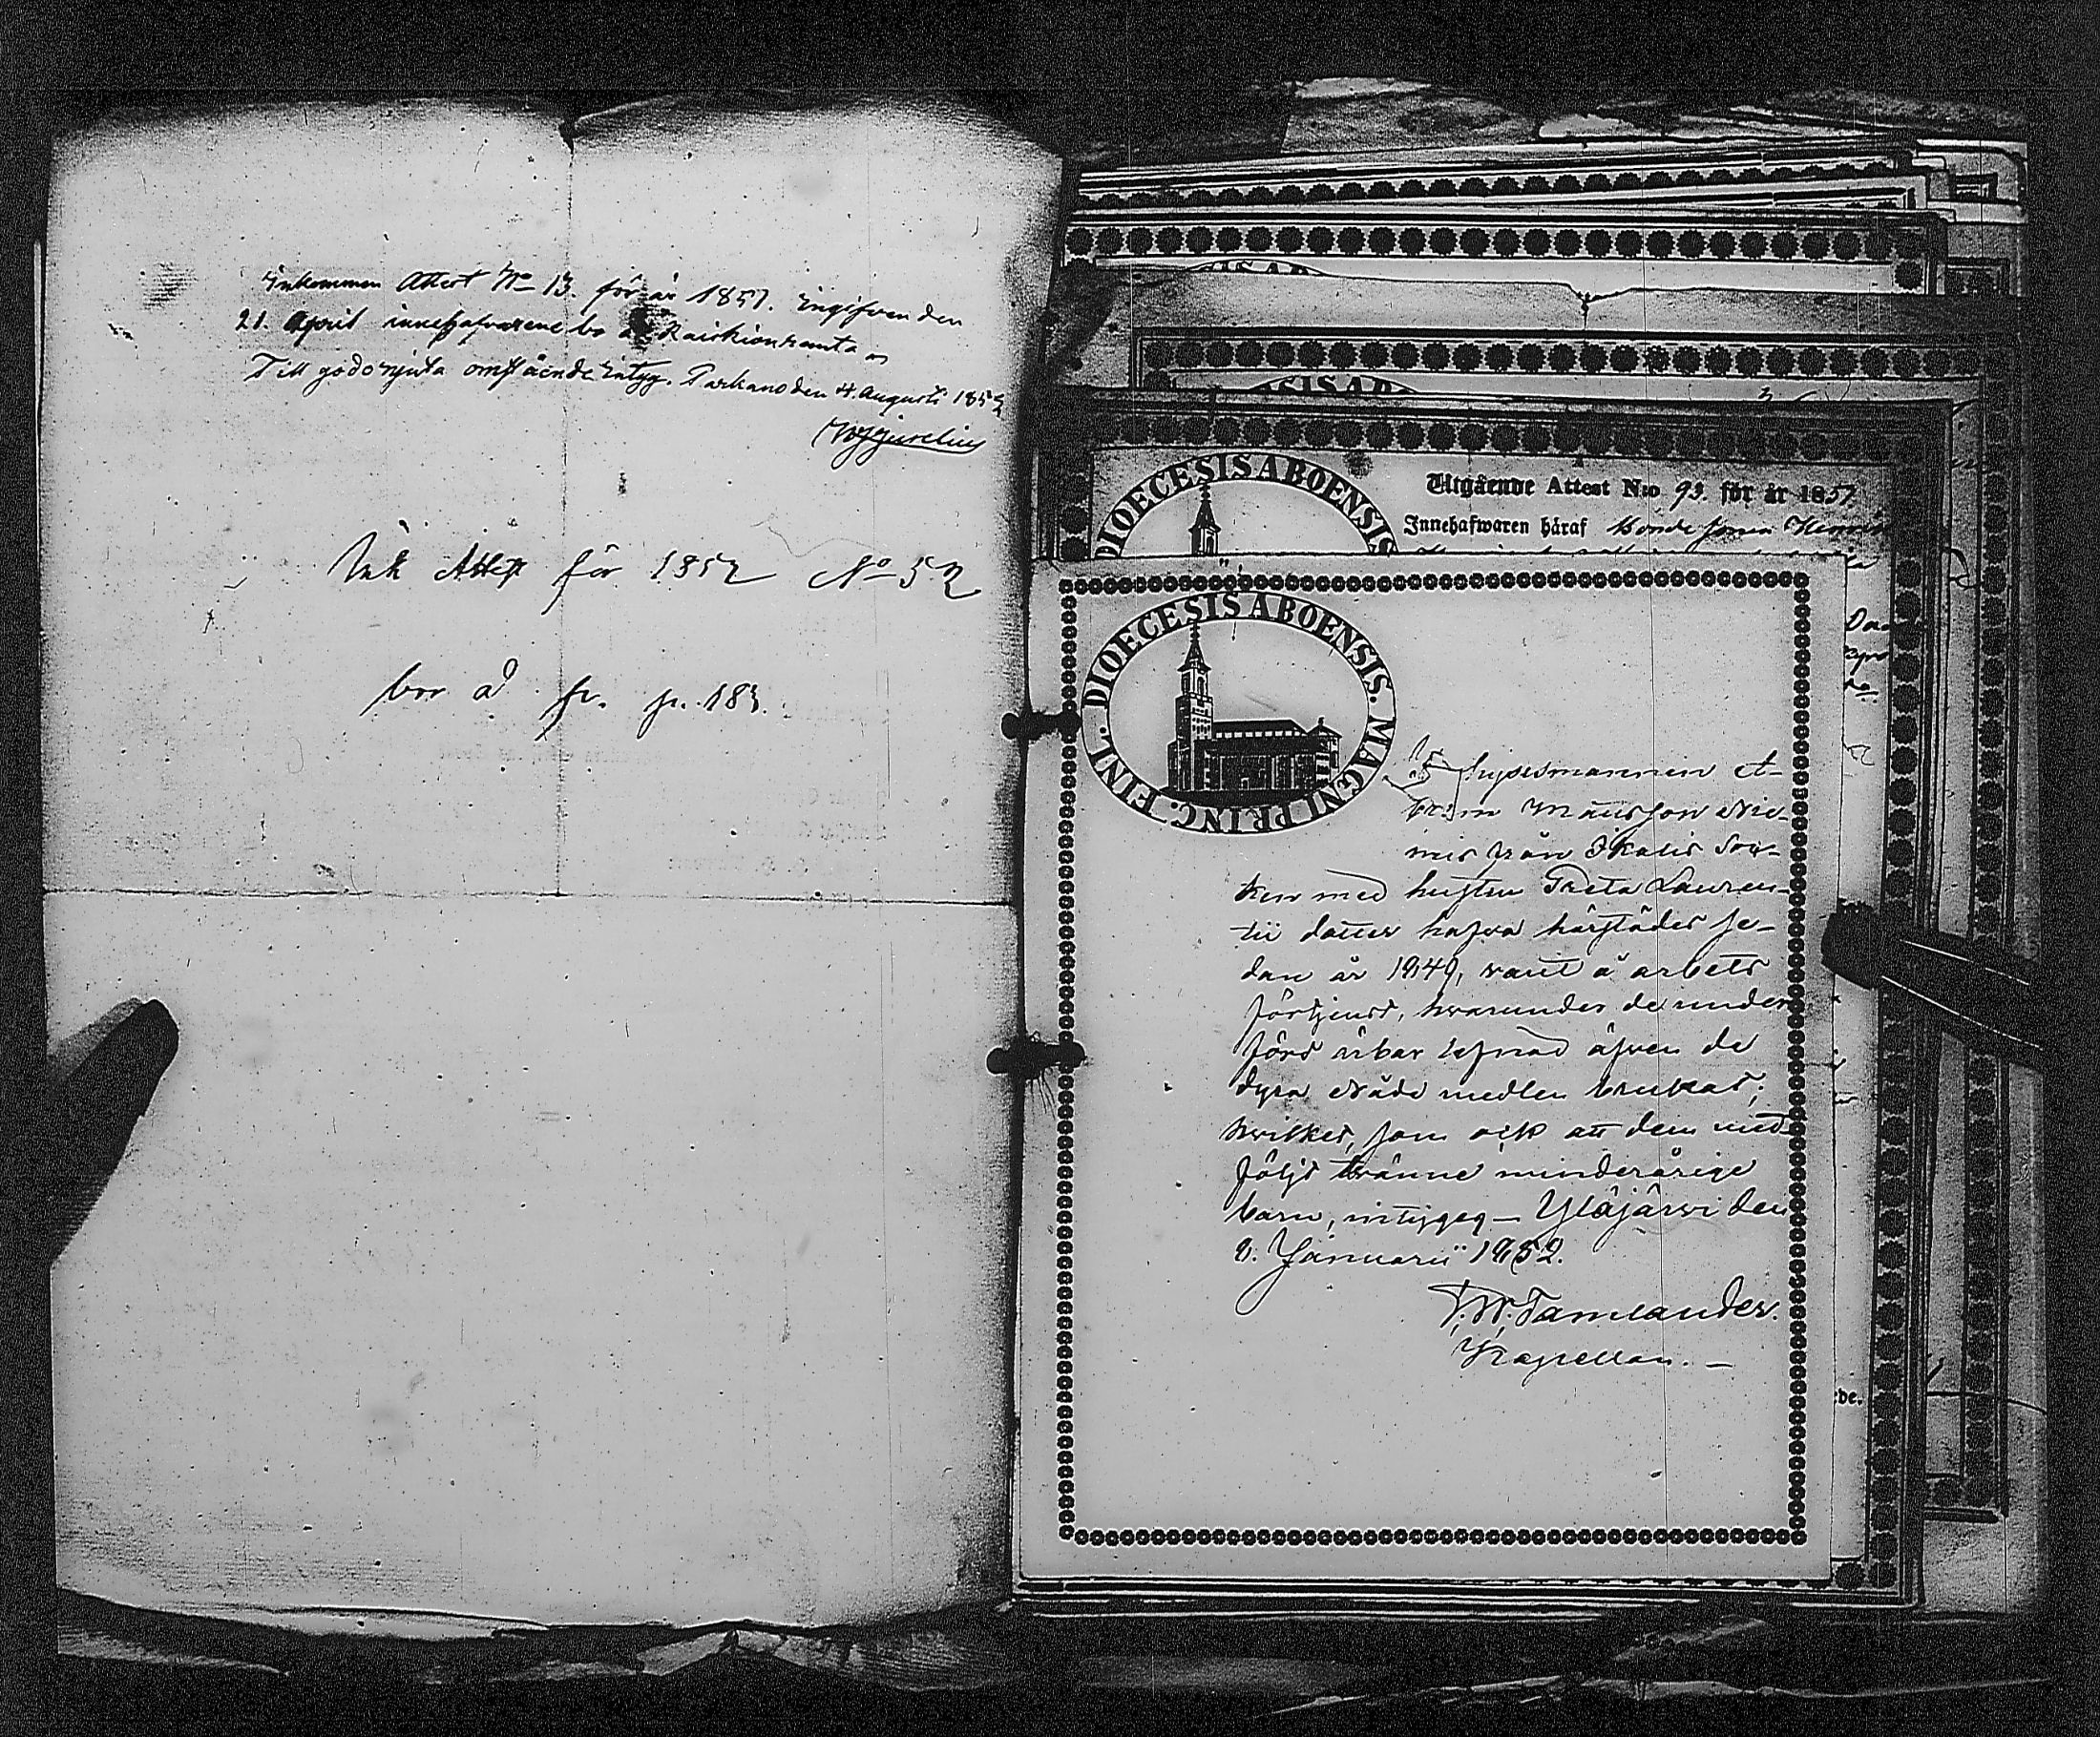 Inkommen Attest No 13. för år 1851. Ingifven den
21. April innehafvarene bo å Raiskionranta
Till godo njuta omstående intyg. Parkano den 4. Augusti 1852
Ink Attest för 1852 No 52
bor å fr. p. 183.
DIOECESIS ABOENSIS
Utgående Attest N:o 93. för år 1851.
Innehafwaren häraf Bonde
DIOECESIS ABOENSIS. MAGNI PRINC. FINL.
Mattsson Nie-
mis från Ikalis Soc-
ken med hustru Greta Lauren-
tii dotter hafva härstädes se-
dan år 1849, varit å arbets
förtjenst, hvarunder de under
förd ärbar lefnad äfven de
dyra Nåde medlen brukat;
hvilket, som ock att dem med
följt tvänne minderårige
barn, intygeg — Ylöjärvi den
8. Januarii 1852.
T. W. Tamlander.
Kapellan. —
de.